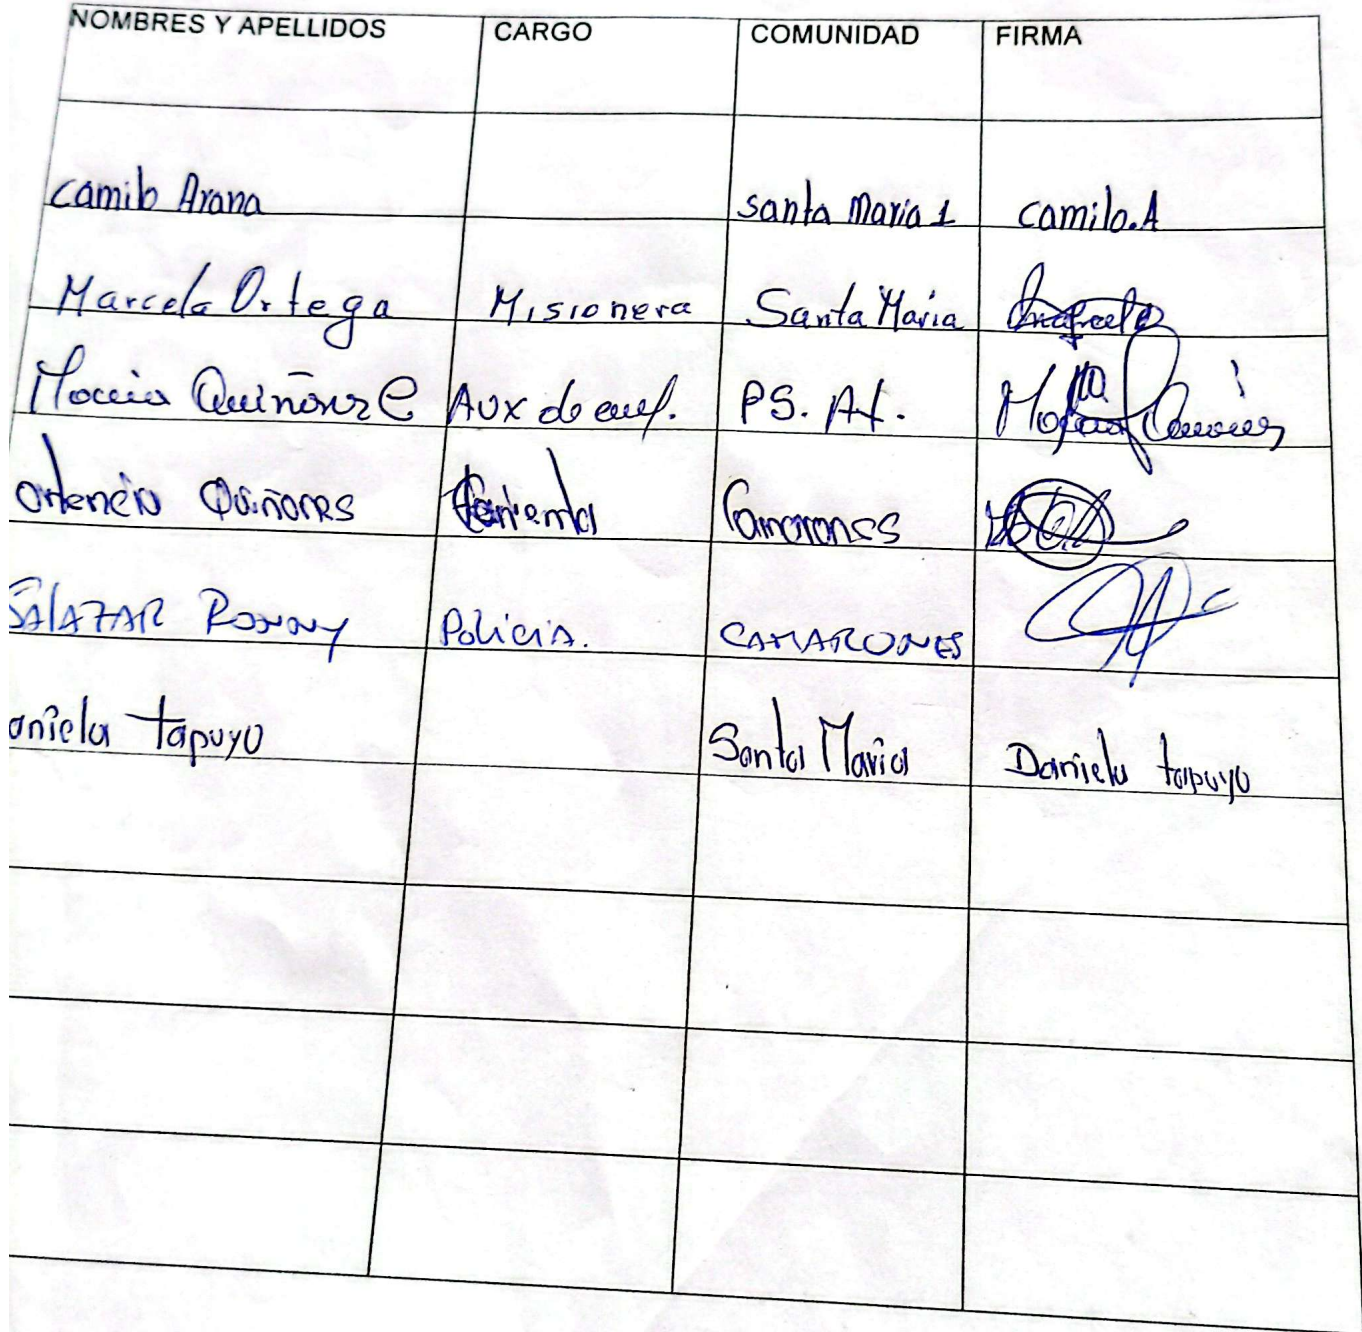 NOMBRES Y APELLIDOS CARGO COMUNIDAD FIRMA
Camilo Arana santa Maria 1 camilo.A
Marcela Ortega Misionera Santa Maria
Quiñonez C Aux de enf. PS. At.
Quiñones Camarones
SALAZAR RONNY Policia. CAMARONES
aniela tapuyo Santa Maria Daniela tapuyo